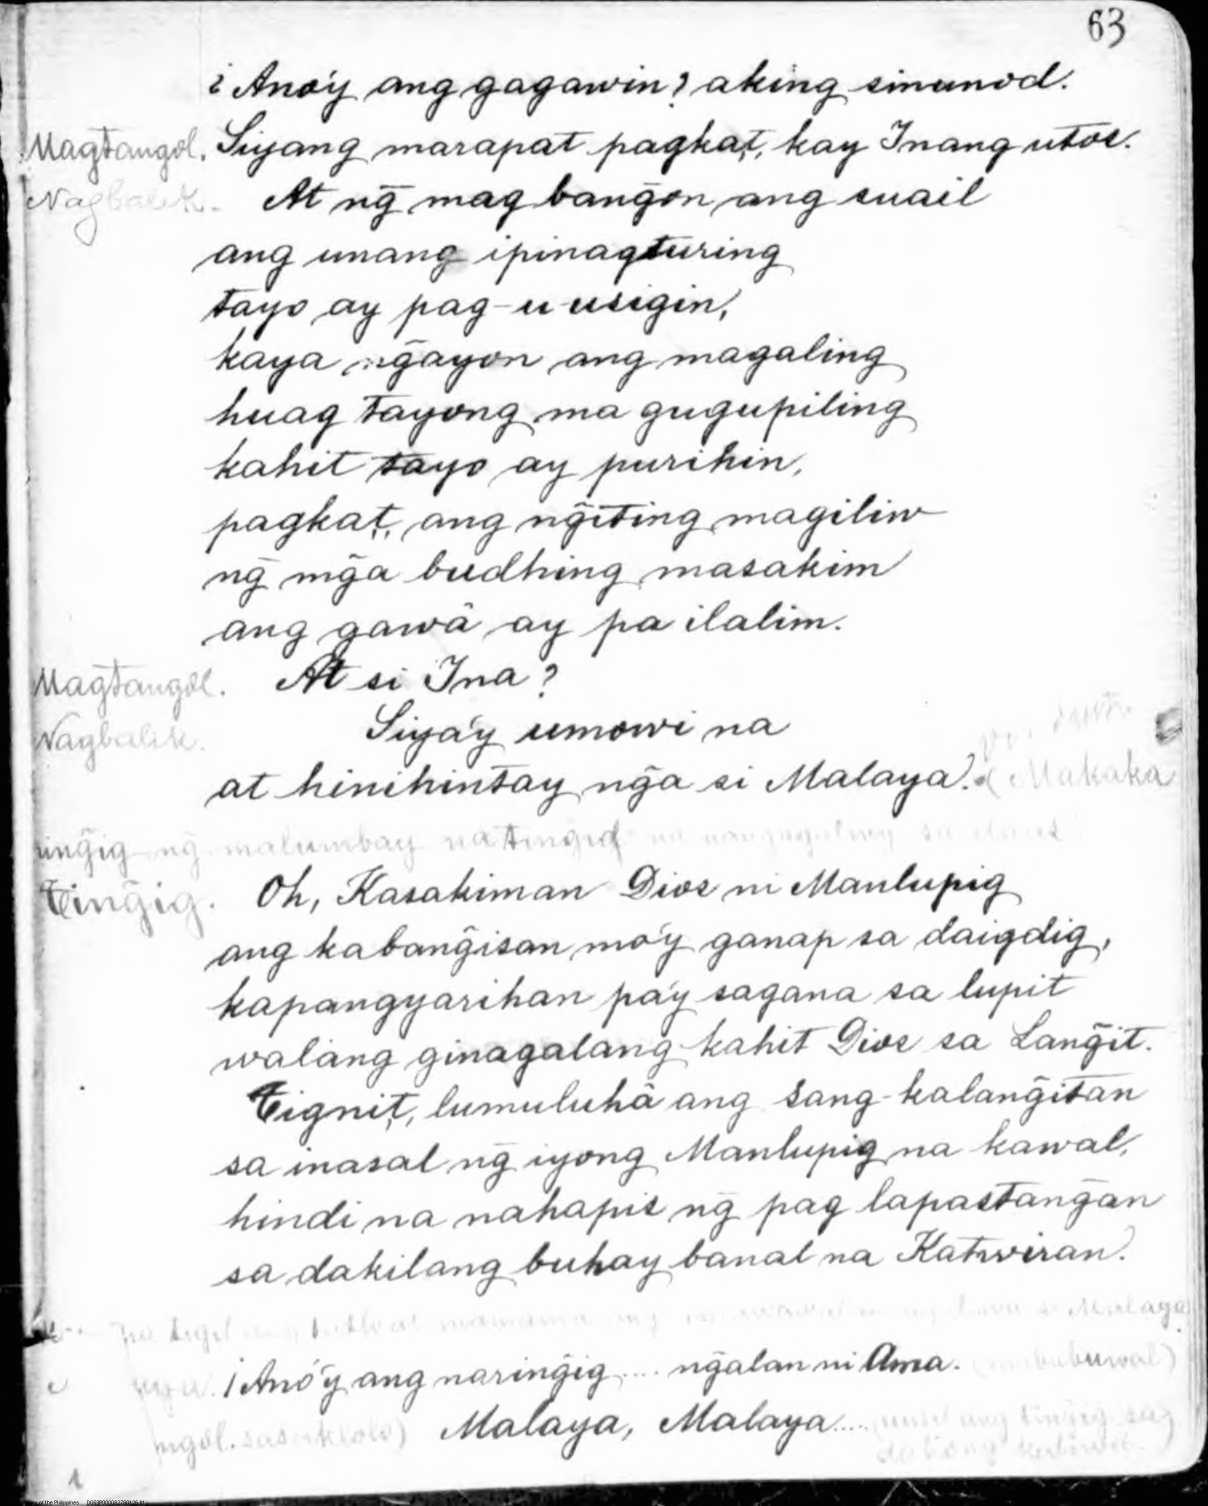 63
¿Ano'y ang gagawin? aking sinunod.
Magtangol. Siyang marapat pagkat, kay Inang utos.
Nagbalik. At ng̃ mag bang̃on ang suail
ang unang ipinagturing
tayo ay pag-u-usigin,
kaya ng̃ayon ang magaling
huag tayong ma gugupiling
kahit tayo ay purihin,
pagkat, ang ng̃iting magiliw
ng̃ mg̃a budhing masakim
ang gawâ ay pa ilalim.
Magtangol. At si Ina?
Nagbalik. Siya'y umowi na
at hinihintay ng̃a si Malaya. (Makaka
ring̃ig ng̃ malumbay na ting̃ig
Ting̃ig. Oh, Kasakiman Dios ni Manlupig
ang kabang̃isan mo'y ganap sa daigdig,
kapangyarihan pa'y sagana sa lupit
walang ginagalang kahit Dios sa Lang̃it.
Tignit, lumuluhâ ang Sang-kalang̃itan
sa inasal ng̃ iyong Manlupig na kawal,
hindi na nahapis ng̃ pag lapastang̃an
sa dakilang buhay banal na Katwiran.
Malaya
¡Anó'y ang naring̃ig.... ng̃alan ni Ama.
Malaya, Malaya....